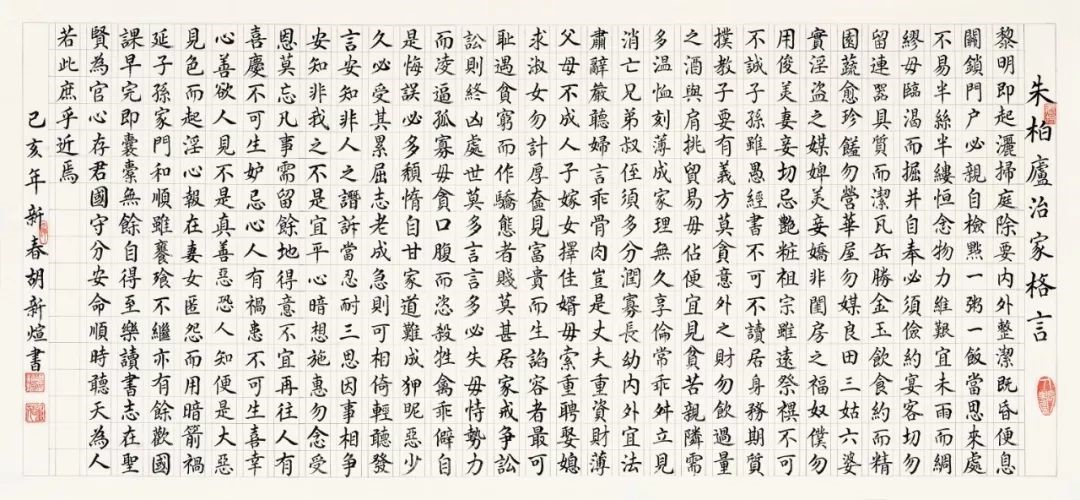 朱柏廬治家格言
黎明即起灑掃庭除要内外整潔既昏便息
關鎖門户必親自檢點一粥一飯當思來處
不易半絲半縷恒念物力維艱宜未雨而綢
繆毋臨渴而掘井自奉必須儉約宴客切勿
留連器具質而潔瓦缶勝金玉飲食約而精
園蔬愈珍饈勿營華屋勿媒良田三姑六婆
實淫盗之媒婢美妾嬌非閨房之福奴僕勿
用俊美妻妾切忌艷粧祖宗雖遠祭祀不可
不誠子孫雖愚經書不可不讀居身務期質
樸教子要有義方莫貪意外之財勿飲過量
之酒與肩挑貿易毋佔便宜見貧苦親隣需
多温恤刻薄成家理無久享倫常乖舛立見
消亡兄弟叔侄須多分潤寡長幼内外宜法
肅辭嚴聽婦言乖骨肉豈是丈夫重資財薄
父母不成人子嫁女擇佳婿毋索重聘娶媳
求淑女勿計厚奩見富貴而生諂容者最可
耻遇貧窮而作驕態者賤莫甚居家戒争訟
訟則終凶處世莫多言言多必失毋恃勢力
而凌逼孤寡毋貪口腹而恣殺牲禽乖僻自
是悔誤必多頹惰自甘家道難成狎昵惡少
久必受其累屈志老成急則可相倚輕聽發
言安知非人之譖訴當忍耐三思因事相争
安知非我之不是宜平心暗想施惠勿念受
恩莫忘凡事需留餘地得意不宜再往人有
喜慶不可生妒忌心人有禍患不可生喜幸
心善欲人見不是真善惡恐人知便是大惡
見色而起淫心報在妻女匿怨而用暗箭禍
延子孫家門和順雖饔飧不繼亦有餘歡國
課早完即囊橐無餘自得至樂讀書志在聖
賢為官心存君國守分安命順時聽天為人
若此庶乎近焉
己亥年新春胡新煊書